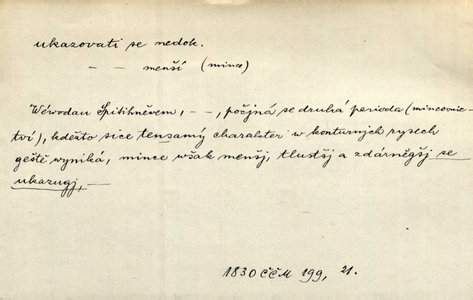 ukazovati se nedok.
— — menší (mince)
Wéwodau Spitihněvem, – –, počjná se druhá perioda (mincovnic-
tví), kdežto sice tensamý charakter w konturných rysech
geště wyniká, mince však menšj, tlustšj a zdárněgšj se
ukazugj, —
1830 ČČM 199, 21.